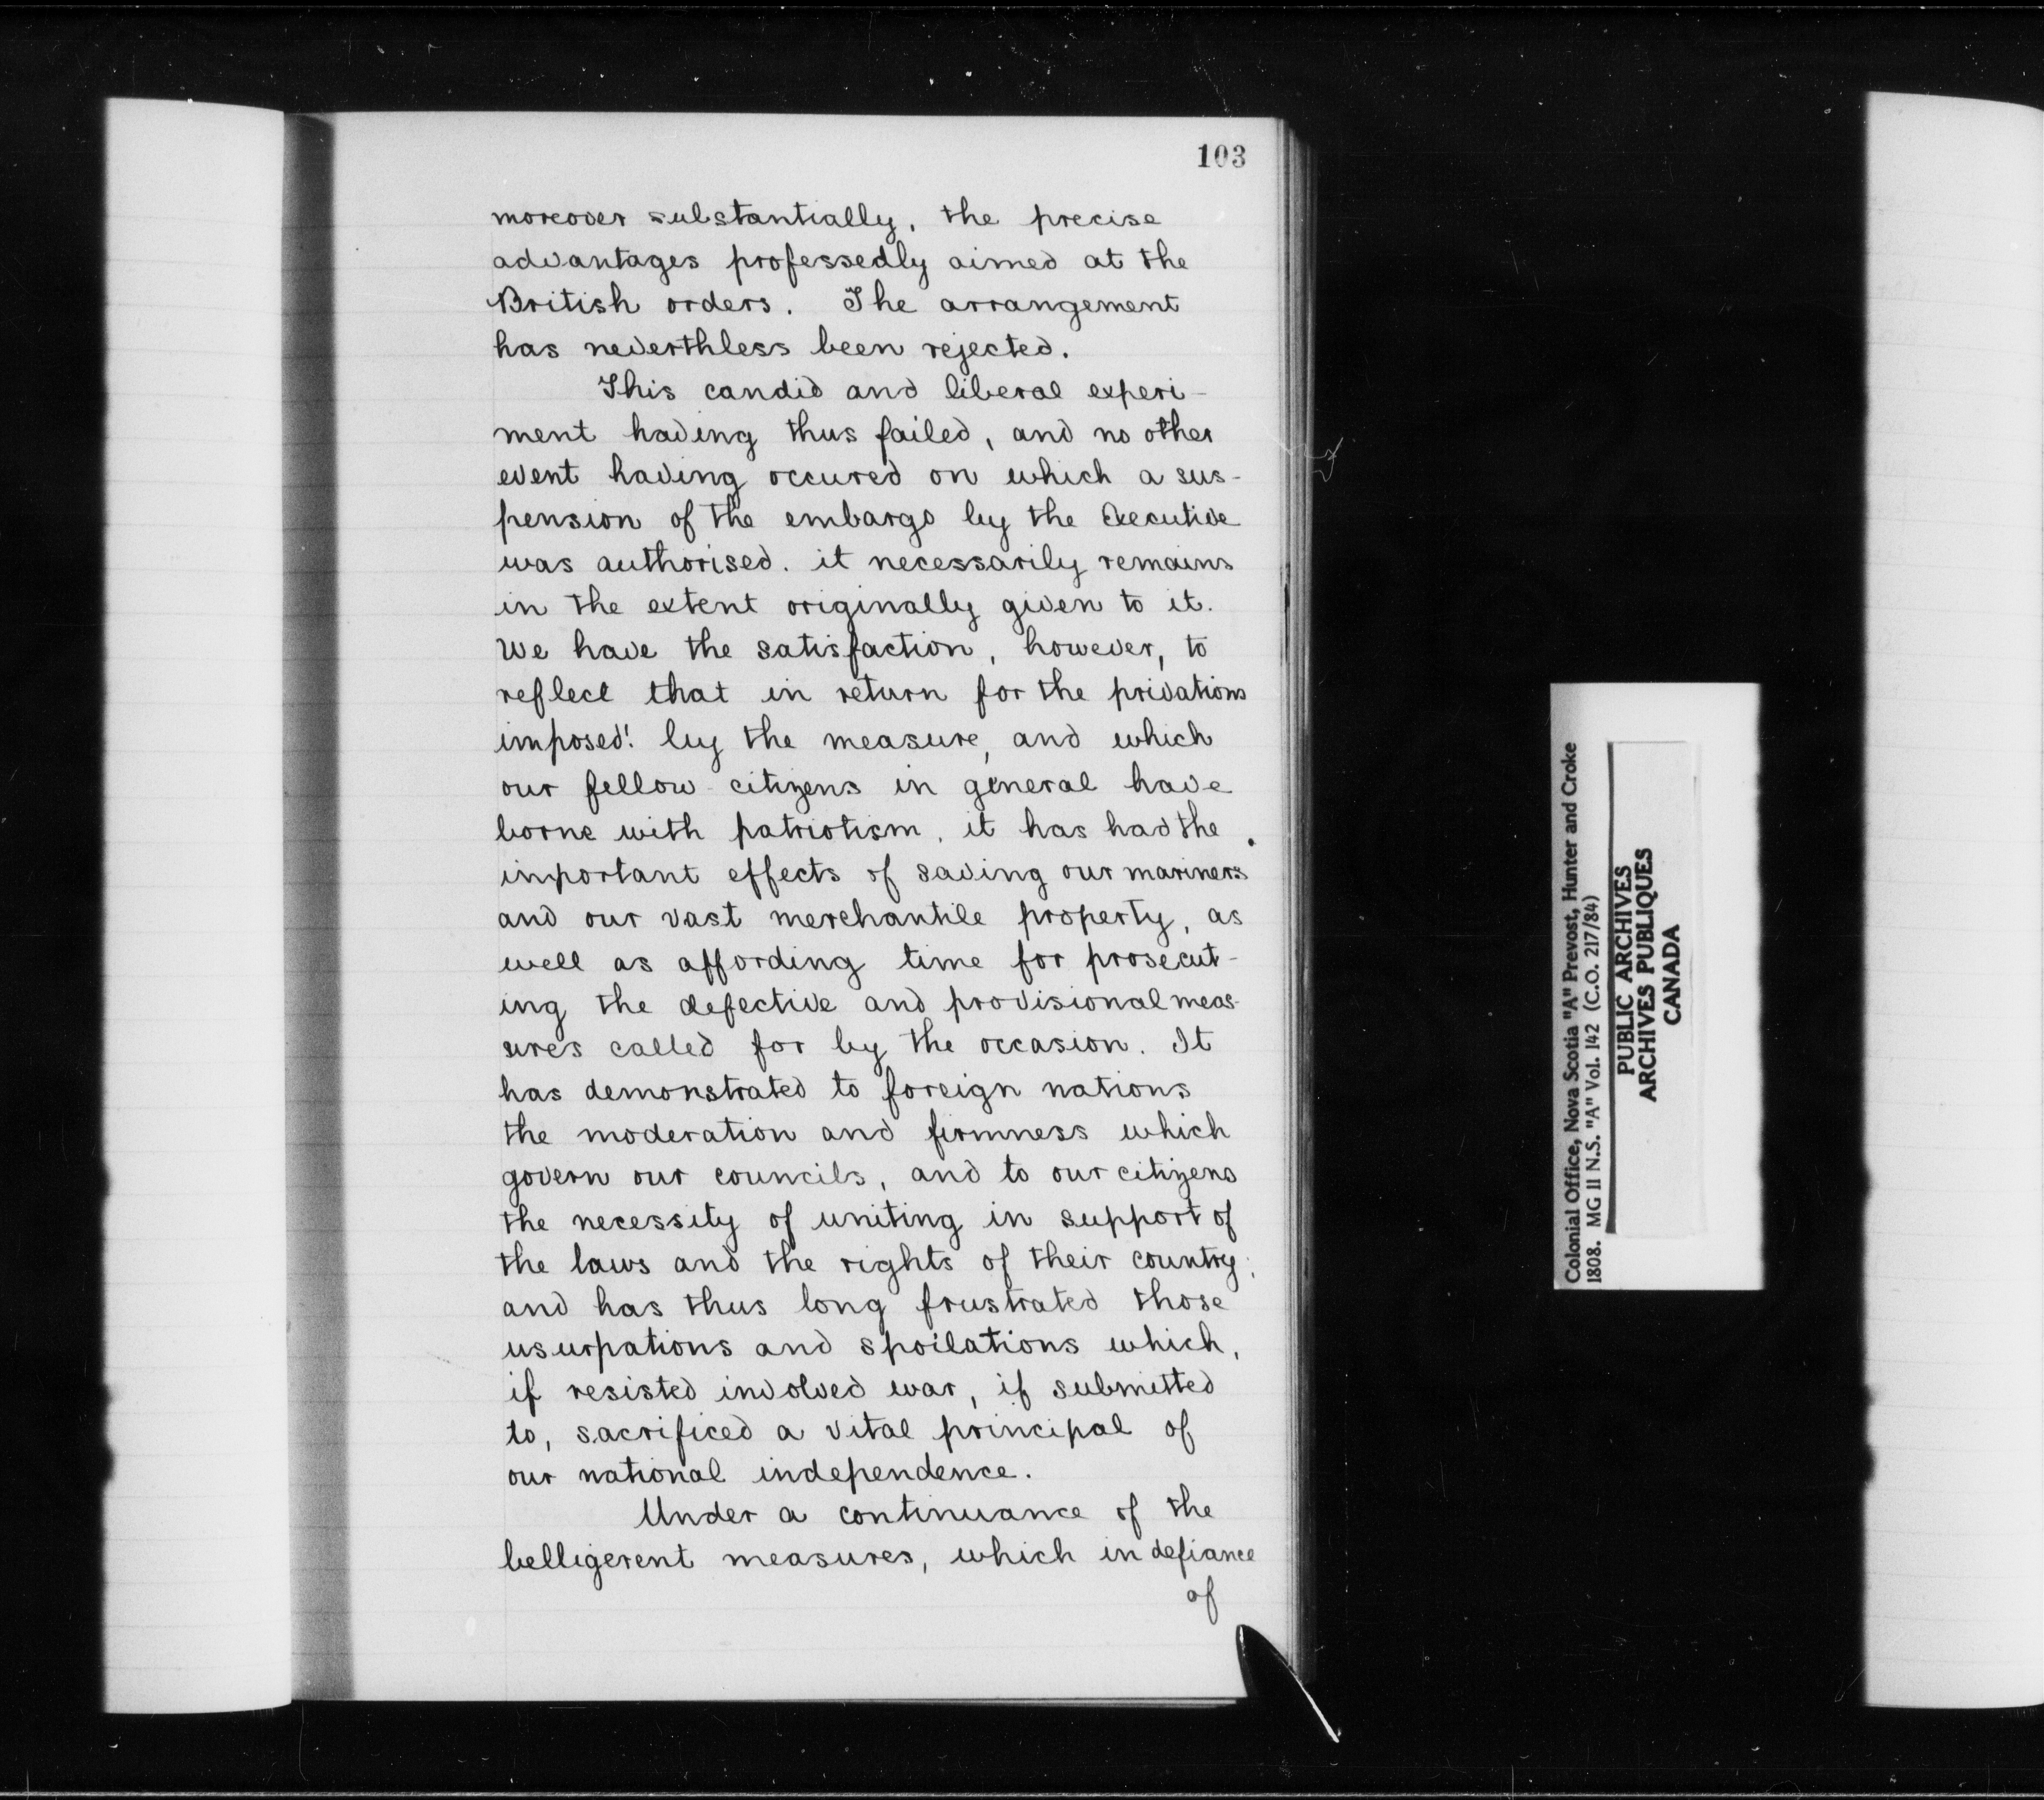 103
moreover substantially, the precise
advantages professedly aimed at the
British orders. The arrangement
has neverthless been rejected.
This candid and liberal experi-
ment having thus failed, and no other
event having occured on which a sus-
pension of the embargo by the Executive
was authorised. it necessarily remains
in the extent originally given to it.
We have the satisfaction, however, to
reflect that in return for the privations
imposed! by the measure, and which
our fellow citizens in general have
borne with patriotism, it has had the
important effects of saving our mariners
and our vast merchantile property, as
well as affording time for prosecut-
ing the defective and provisional meas-
ures called for by the occasion. It
has demonstrated to foreign nations
the moderation and firmness which
govern our councils, and to our citizens
the necessity of uniting in support of
the laws and the rights of their country;
and has thus long frustrated those
usurpations and spoilations which,
if resisted involved war, if submitted
to, sacrificed a vital principal of
our national independence.
Under a continuance of the
belligerent measures, which in defiance
of
Colonial Office, Nova Scotia "A" Prevost, Hunter and Croke
1808. MG 11 N.S. "A" Vol. 142 (C.O. 217/84)
PUBLIC ARCHIVES
ARCHIVES PUBLIQUES
CANADA